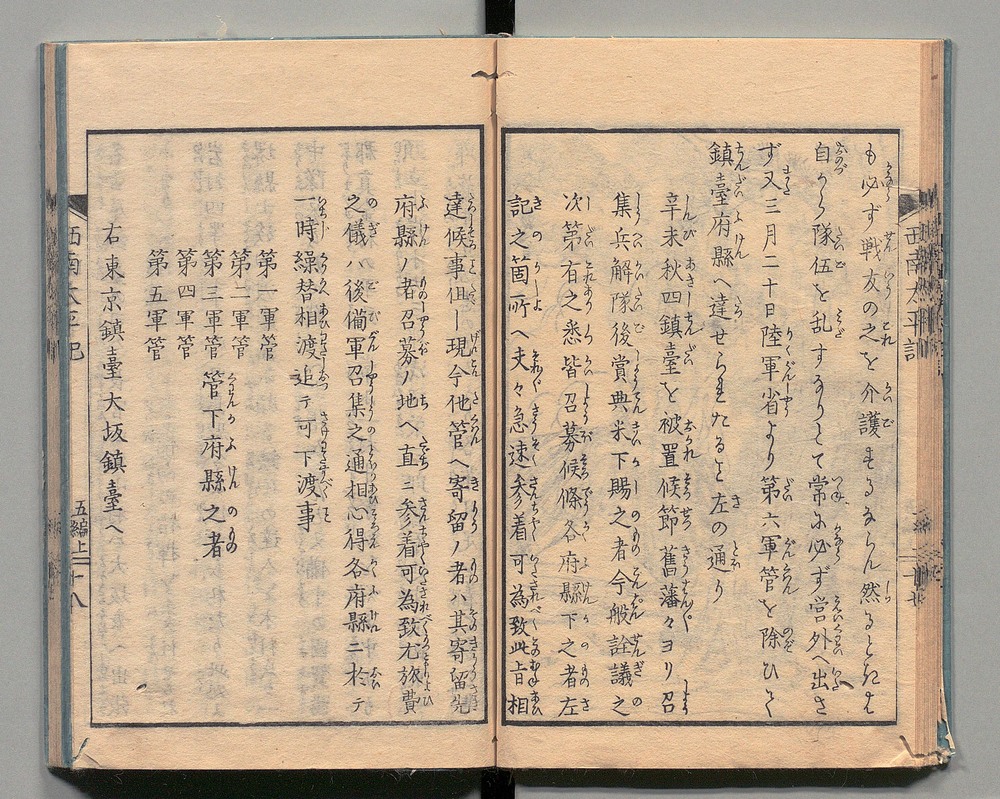 も必ず戦友の之を介護するならん然るときは
自から隊伍を乱すなりとて常に必ず営外へ出さ
ず又三月二十日陸軍省より第六軍管を除ひて
鎮臺府縣へ達せられたると左の通り
辛未秋四鎮臺を被置候節舊藩々ヨリ召
集兵解隊後賞典米下賜之者今般詮議之
次第有之悉皆召募候條各府縣下之者左
記之箇所へ夫々急速参着可為致此旨相
達候事但し現今他管へ寄留ノ者ハ其寄留先
府縣ノ者召募ノ地へ直ニ参着可為致尤旅費
之儀ハ後備軍召集之通相心得各府縣ニ於テ
一時繰替相渡追テ可下渡事
第一軍管
第二軍管
第三軍管 管下府縣之者
第四軍管
第五軍管
右東京鎮臺大坂鎮臺へ
西南太平記
五編上
十八